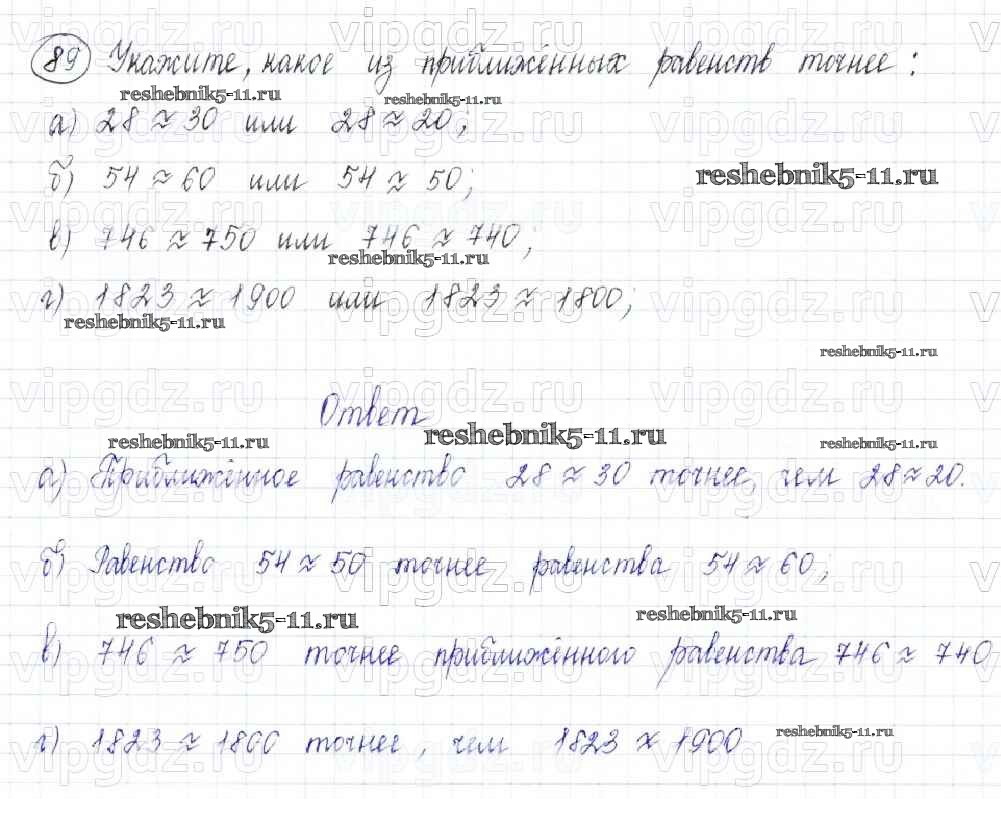 89 Укажите, какое из приближённых равенств точнее:
reshebnik5-11.ru reshebnik5-11.ru
а) 28 ≈ 30 или 28 ≈ 20;
б) 54 ≈ 60 или 54 ≈ 50;
reshebnik5-11.ru
в) 746 ≈ 750 или 746 ≈ 740;
reshebnik5-11.ru
г) 1823 ≈ 1900 или 1823 ≈ 1800;
reshebnik5-11.ru
reshebnik5-11.ru
Ответ
reshebnik5-11.ru reshebnik5-11.ru reshebnik5-11.ru
а) Приближённое равенство 28 ≈ 30 точнее, чем 28 ≈ 20.
б) Равенство 54 ≈ 50 точнее равенства 54 ≈ 60;
reshebnik5-11.ru reshebnik5-11.ru
в) 746 ≈ 750 точнее приближённого равенства 746 ≈ 740
г) 1823 ≈ 1800 точнее, чем 1823 ≈ 1900
reshebnik5-11.ru
vipgdz.ru vipgdz.ru vipgdz.ru